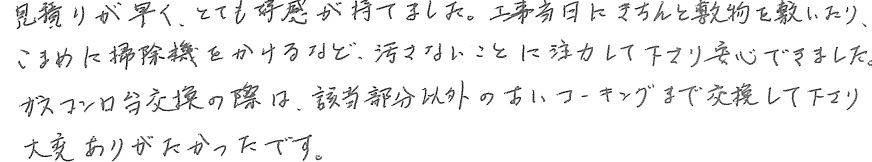 見積りが早く、とても好感が持てました。工事当日にきちんと敷物を敷いたり、
こまめに掃除機をかけるなど、汚さないことに注力して下さり安心できました。
ガスコンロ台交換の際は、該当部分以外の古いコーキングまで交換して下さり
大変ありがたかったです。